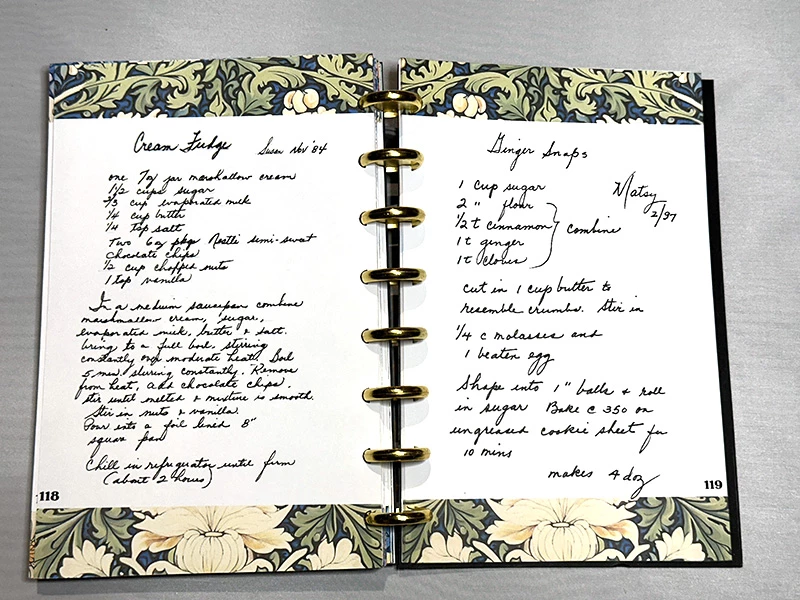 Cream Fudge Susan Nov '84
one 7oz jar marshallow cream
1 1/2 cups sugar
2/3 cup evaporated milk
1/4 cup butter
1/4 tsp salt
Two 6oz pkgs Nestlé semi-sweet
chocolate chips
1/2 cup chopped nuts
1 tsp vanilla
In a medium saucepan combine
marshmallow cream, sugar,
evaporated milk, butter & salt.
bring to a full boil, stirring
constantly over moderate heat. Boil
5 min. stirring constantly. Remove
from heat, add chocolate chips.
Stir until melted & mixture is smooth.
Stir in nuts & vanilla.
Pour into a foil lined 8"
square pan
Chill in refrigerator until firm
(about 2 hours)
118
Ginger Snaps
Matsy
2/97
1 cup sugar
2 " flour
1/2 t cinnamon
1 t ginger
1 t cloves
combine
cut in 1 cup butter to
resemble crumbs. Stir in
1/4 c molasses and
1 beaten egg
Shape into 1" balls & roll
in sugar Bake @ 350 on
ungreased cookie sheet for
10 mins
makes 4 doz
119